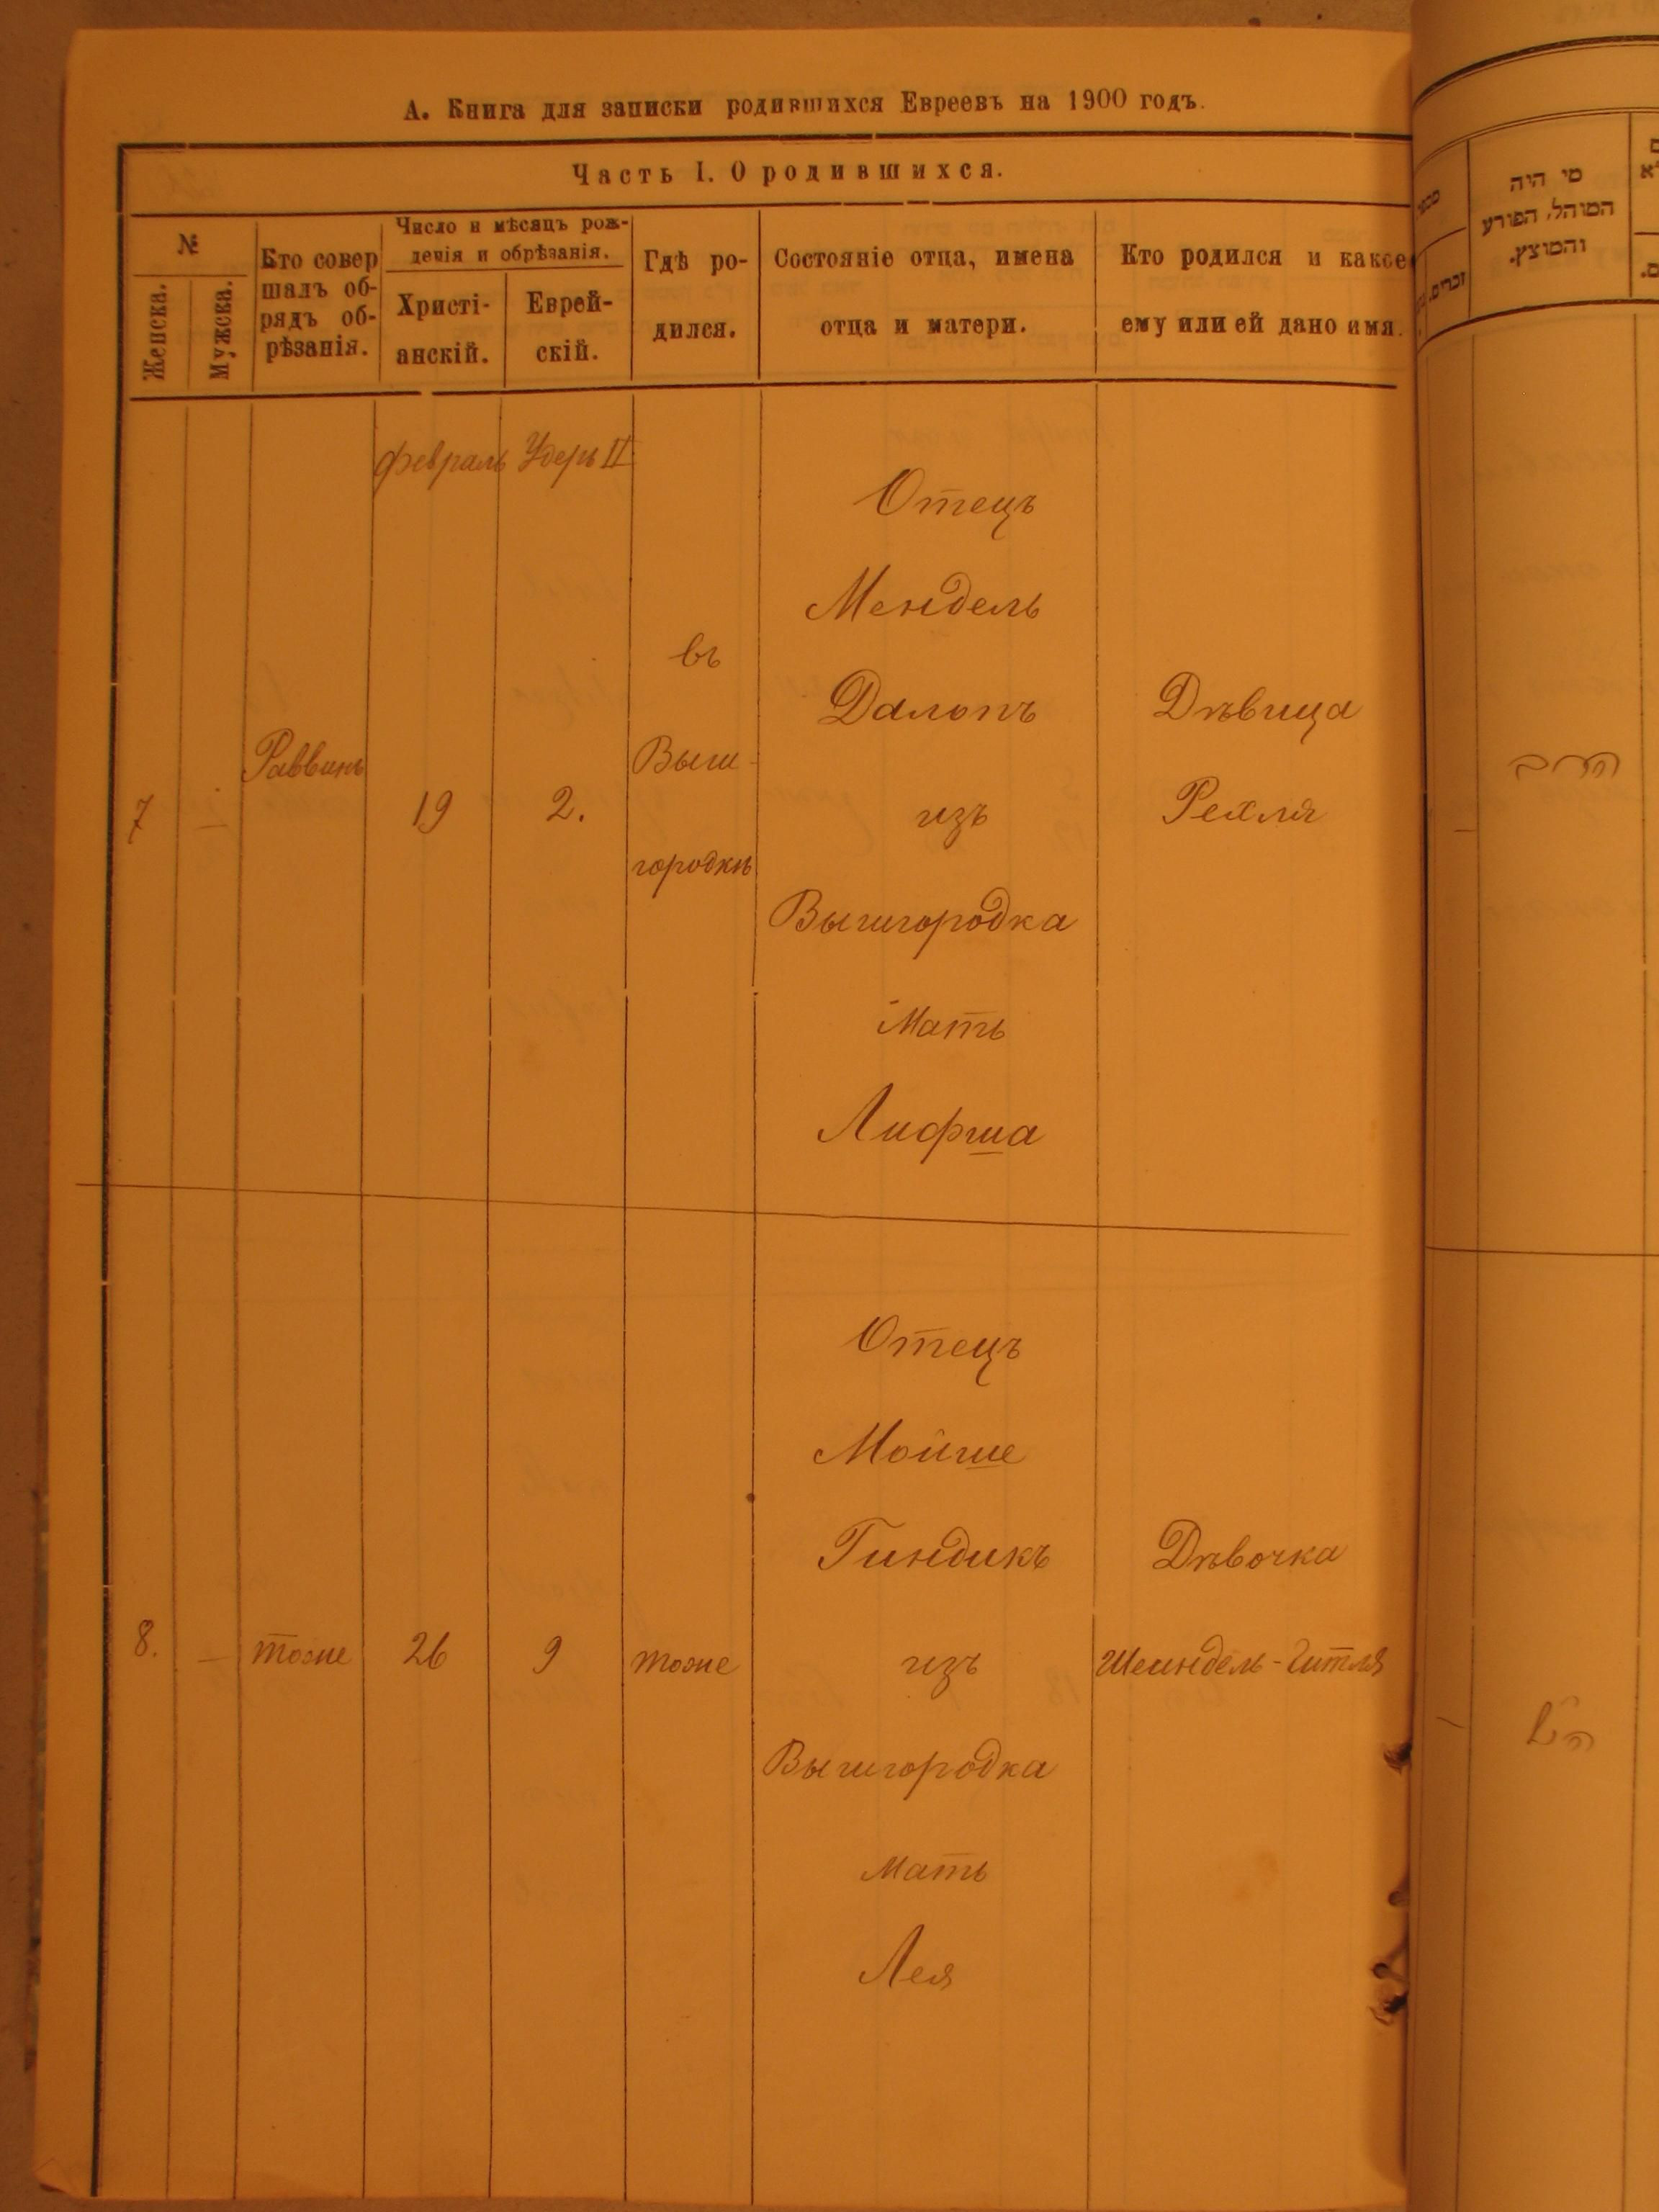 А. Книга для записки родившихся Евреевъ на 1900 годъ.
Часть I. О родившихся.
№
Женска.
Мужска.
Кто совер
шалъ об-
рядъ об-
рѣзанія.
Число и мѣсяцъ рож-
денія и обрѣзанія.
Христі-
анскій.
Еврей-
скій.
Гдѣ ро-
дился.
Состояніе отца, имена
отца и матери.
Кто родился и какое
ему или ей дано имя.
февраль Удеръ II
7
—
Раввинъ
19
2.
въ
Выш-
городкѣ
Отецъ
Мендель
Далопъ
изъ
Вышгородка
Мать
Лифша
Дѣвица
Рехля
8.
—
тоже
26
9
тоже
Отецъ
Мойше
Гиндикъ
изъ
Вышгородка
Мать
Лея
Дѣвочка
Шеиндель-Гитля
זכרים.
מי היה
המוהל, הפורע
והמוצץ.
הרב
הנ״ל